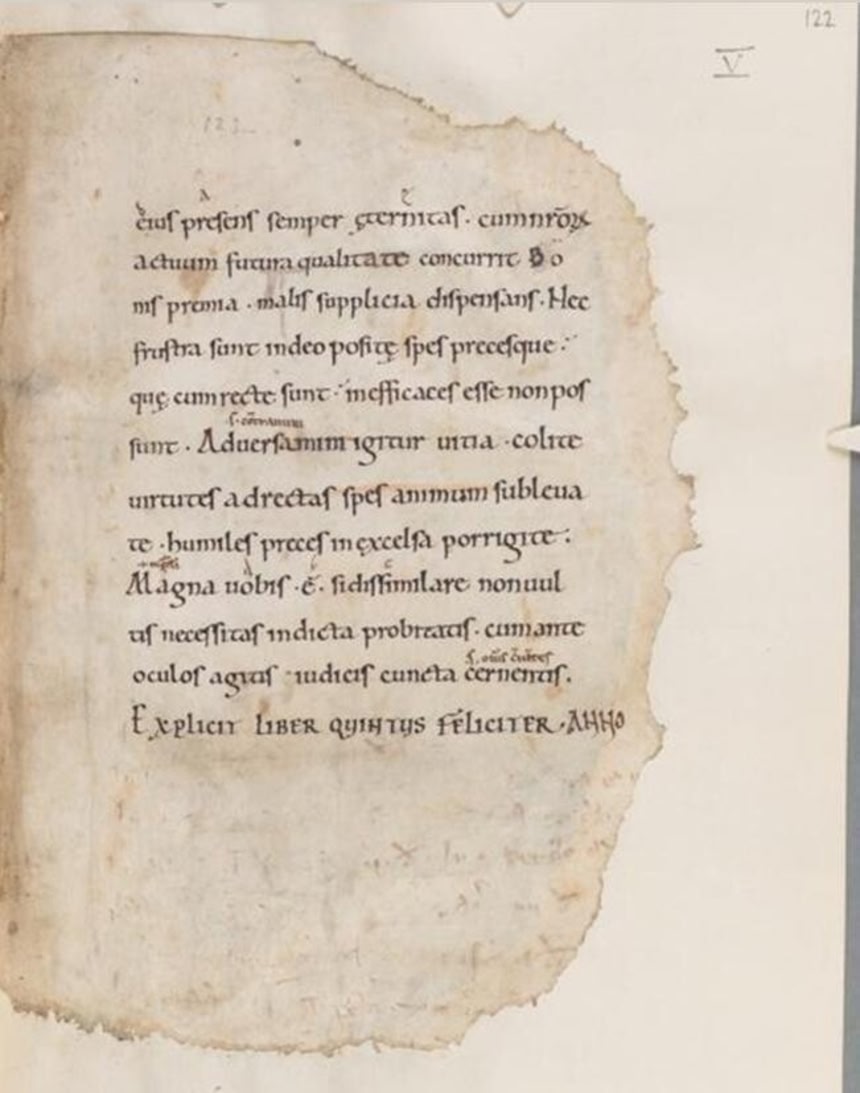 122
V
122
eius presens semper ęternitas. cum nr̄oꝝ
actuum futura qualitate concurrit Bo
nis premia. malis supplicia dispensans. Nec
frustra sunt in deo positę spes precesque.
quę cum recte sunt inefficaces esse non pos
sunt. Aduersamini igitur uitia. colite
uirtutes ad rectas spes animum subleua
te. humiles preces in excelsa porrigite.
Magna uobis. ē. si dissimilare non uul
tis necessitas indicta probitatis. cum ante
oculos agitis iudicis cuncta cernentis.
EXPLICIT LIBER QUINTUS FELICITER. ANNO